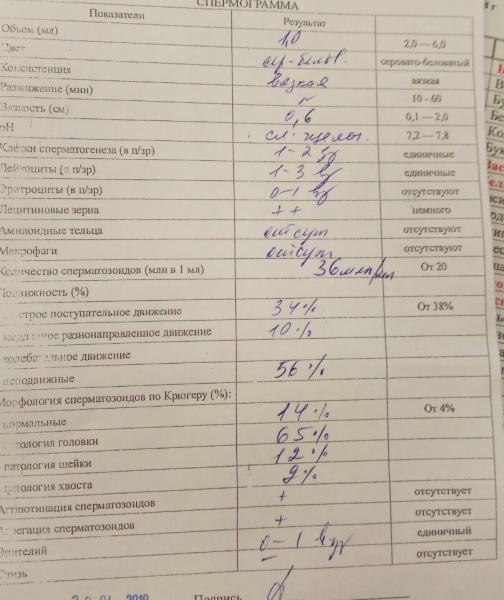 СПЕРМОГРАММА
Показатели Результат
Объем (мл) 1,0 2,0 — 6,0
Цвет ср-белый. серовато-беловатый
Консистенция вязкая вязкая
Разжижение (мин) 10 - 60
Вязкость (см) 0,6 0,1 — 2,0
pH сл. щелоч. 7,2 — 7,8
Клетки сперматогенеза (в п/зр) 1-2 единичные
Лейкоциты (в п/зр) 1-3 единичные
Эритроциты (в п/зр) 0-1 отсутствуют
Лецитиновые зерна ++ немного
Амилоидные тельца отсут отсутствуют
Макрофаги отсут отсутствуют
Количество сперматозоидов (млн в 1 мл) 36 млн/мл От 20
Подвижность (%)
строе поступательное движение 34% От 38%
медленное разнонаправленное движение 10%
колебательное движение
неподвижные 56%
Морфология сперматозоидов по Крюгеру (%):
нормальные 14% От 4%
патология головки 65%
патология шейки 12%
патология хвоста 9%
Агглютинация сперматозоидов + отсутствует
Агрегация сперматозоидов + отсутствует
Эпителий 0-1 единичный
Слизь – отсутствует
Подпись